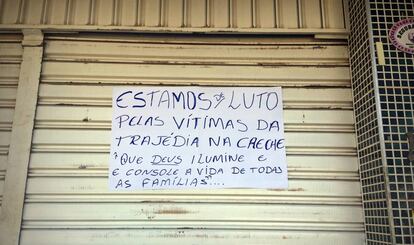 ESTAMOS DE LUTO
PELAS VÍTIMAS DA
TRAJÉDIA NA CRECHE
"QUE DEUS ILUMINE E
E CONSOLE A VIDA DE TODAS
AS FAMÍLIAS"....